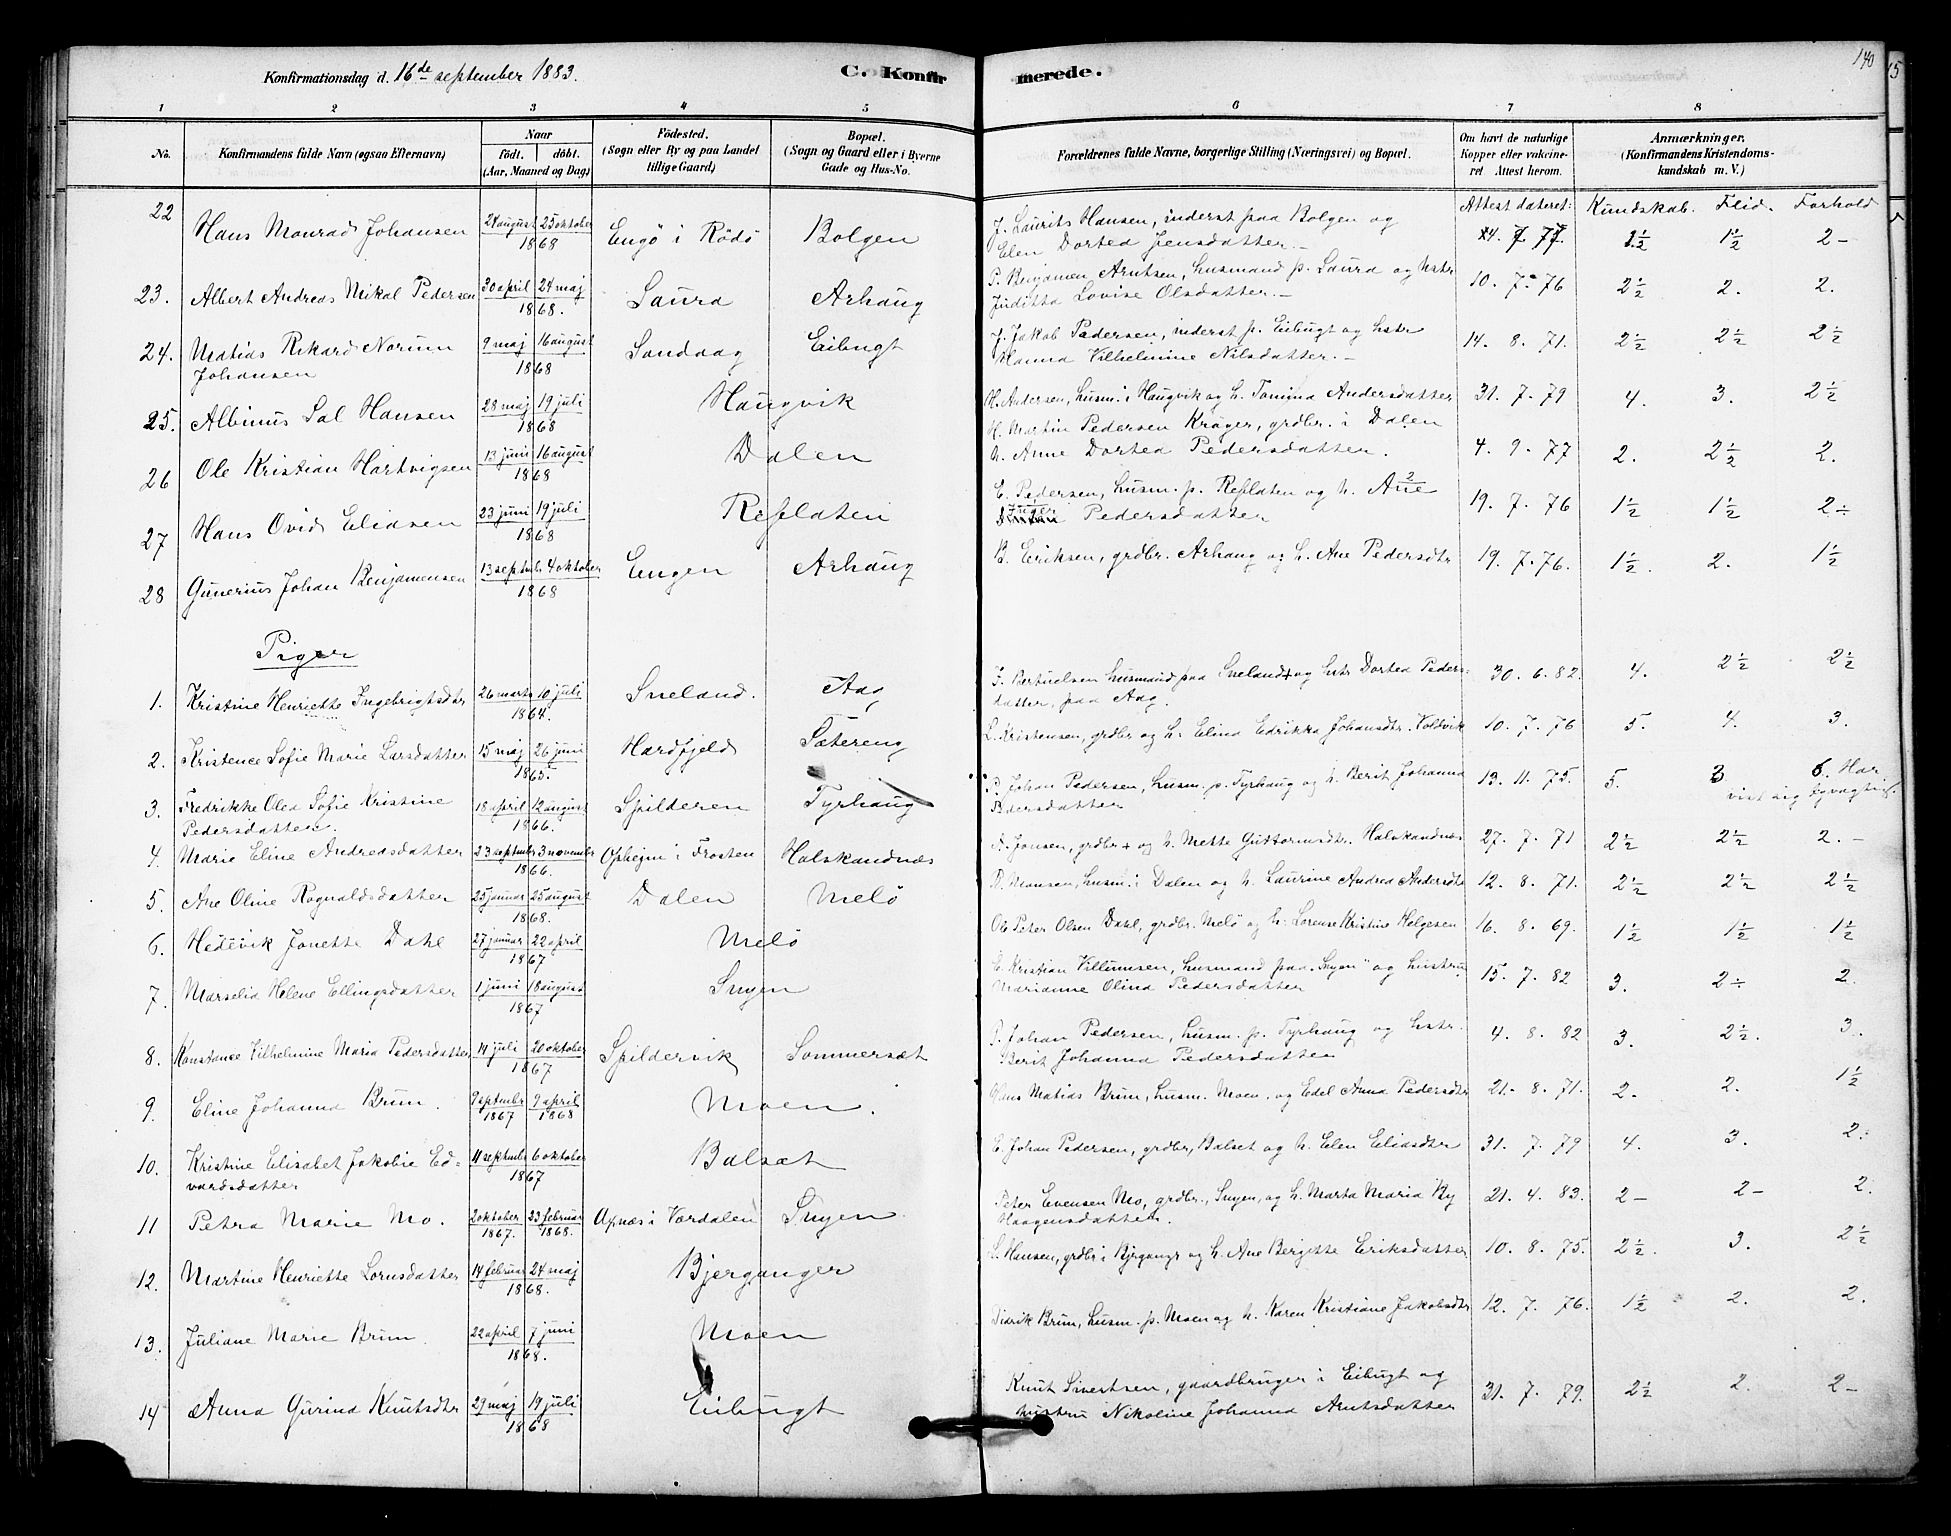 140
15
Konfirmationsdag d. 16de september 1883.
C. Konfirmerede.
1 2 3 4 5 6 7 8
No. Konfirmandens fulde Navn (ogsaa Efternavn) Naar födt. döbt. (Aar, Maaned og Dag) Födested. (Sogn eller By og paa Landet tillige Gaard) Bopæl. (Sogn og Gaard eller i Byerne Gade og Hus-No. Forældrenes fulde Navne, borgerlige Stilling (Næringsvei) og Bopæl. Om havt de naturlige Kopper eller vakcineret. Attest herom. Anmærkninger, (Konfirmandens Kristendomskundskab m. V.)
Attest dateret: Kundskab. Flid. Forhold
22 Hans Monrad Johansen 24 august 25 oktober 1868 Engö i Rödö Bolgen J. Laurits Hansen, inderst paa Bolgen og
Elen Dorted Jensdatter. — 14. 7. 77. 2½ 1½ 2 -
23. Albert Andreas Mikal Pedersen 30 april 24 maj 1868. Saura Arhaug P. Benjamen Arntsen, husmand p. Saura og hstr
Juditta Lovise Olsdatter. — 10. 7. 76 2½ 2. 2.
24. Matias Rikard Norum 9 maj 16 august 1868 Sandaag Eibugt J. Jakob Pedersen, inderst p. Eibugt og hstr
Johansen Hanna Vilhelmine Nilsdatter. — 14. 8. 71. 2½ 2½ 2½
25. Albinus Sal Hansen 28 maj 19 juli 1868 Haugvik H. Andersen, husm. i Haugvik og h. Tomina Andersdatter 31. 7. 79 4. 3. 2½
26 Ole Kristian Hartvigsen 13 juni 16 august 1868 Dalen H. Martin Pedersen Kröger, grdbr. i Dalen
h. Anne Dorted Pedersdatter. 4. 9. 77 2. 2½ 2.
27 Hans Ovid Eliasen 23 juni 19 juli 1868 Resflaten E. Pedersen, husm. p. Resflaten og h. Ane
Inger Pedersdatter 19. 7. 76 1½ 1½ 2 ÷
28 Gunerius Johan Benjamensen 13 septmbr 4 oktober 1868 Engen Arhaug B. Eriksen, grdbr. Arhaug og h. Ane Pedersdtr 19. 7. 76. 1½. 2. 1½
Piger
1. Kristine Henriette Ingebrigtsdtr 26 marts 10 juli 1864. Sneland. Aag I. Bertuelsen husmand paa Sneland + og hstr Dorted Peders-
datter, paa Aag. 30. 6. 82. 4. 2½ 2½
2. Kristence Sofie Marie Larsdatter 15 maj 26 juni 1865. Hardfjeld Sætereng L. Kristensen, grdbr og h. Elina Edrikka Johansdtr. Voldvik 10. 7. 76 5. 4. 3.
3. Fredrikke Olea Sofie Kristine 18 april 12 august 1866. Spilderen Tyrhaug P. Johan Pedersen, husm. p. Tyrhaug og h. Berit Johanna
Pedersdatter. Pedersdatter 13. 11. 75. 5. 3 6. Har
vist sig
4. Marie Eline Andreasdatter 23 septmbr 3 november 1866. Opheim i Frosten Halskandnæs A. Jonsen, grdbr + og h. Mette Guttormsdtr. Halskandnæs 27. 7. 71 2½ 2½ 2. -
5. Ane Oline Ragnaldsdatter 25 januar 25 august 1868. Dalen Melö R. Monsen, husm. i Dalen og h. Laurine Andrea Andersdtr 12. 8. 71. 2½ 2½ 2½
6. Hedevik Jonette Dahl 27 januar 22 april 1867 Melö Ole Peter Olsen Dahl, grdbr. Melö og h. Lorense Kristine Helgesen 16. 8. 69. 1½ 1½ 1½
7. Marselia Helene Ellingsdatter 1 juni 18 august 1867 Snyen E. Kristian Villumsen, husmand paa „Snyen" og hustru
Marianne Olina Pedersdatter 15. 7. 82 3. 2 ÷ 2.
8. Konstance Vilhelmine Maria Pedersdatter 14 juli 20 oktober 1867 Spildervik Sommersæt P. Johan Pedersen, husm. p. Tyrhaug og hstr.
Berit Johanna Pedersdatter 4. 8. 82 3. 2½. 3.
9. Eline Johanna Brun. 9 septmbr 1867 9 april 1868 Moen. Hans Matias Brun, husm. Moen, og Edel Anna Pedersdtr 21. 8. 71. 2. 2. 1½
10. Kristine Elisabet Jakobie Ed= 11 septmbr 6 oktober 1867 Balsæt E. Johan Pedersen, grdbr, Balset og h. Elen Eliasdtr 31. 7. 79 4. 3. 2.
vardsdatter
11 Petra Marie Mo. 2 oktober 1867. 23 februar 1868. Apnæs i Værdalen Snyen. Peter Evensen Mo, grdbr., Snyen, og h. Marta Maria By
Haagensdatter. 21. 4. 83. 2 - 2 - 2.
12. Martine Henriette Lornsdatter 14 februar 24 maj 1868. Bjerganger L. Hansen, grdbr i Bjrgangr og h. Ane Bergitte Eriksdatter 10. 8. 75. 2½. 3. 2½
13. Juliane Marie Brun. 22 april 7 juni 1868. Moen Didrik Brun, husm. p. Moen og h. Karen Kristiane Jakobsdtr 12. 7. 76. 1½ 2. 2.
14 Anna Gurina Knutsdtr 29 maj 19 juli 1868 Eibugt Knut Sivertsen, gaardbruger i Eibugt og
hustru Nikoline Johanna Arntsdatter 31. 7. 79. 2½ 2. 2 -